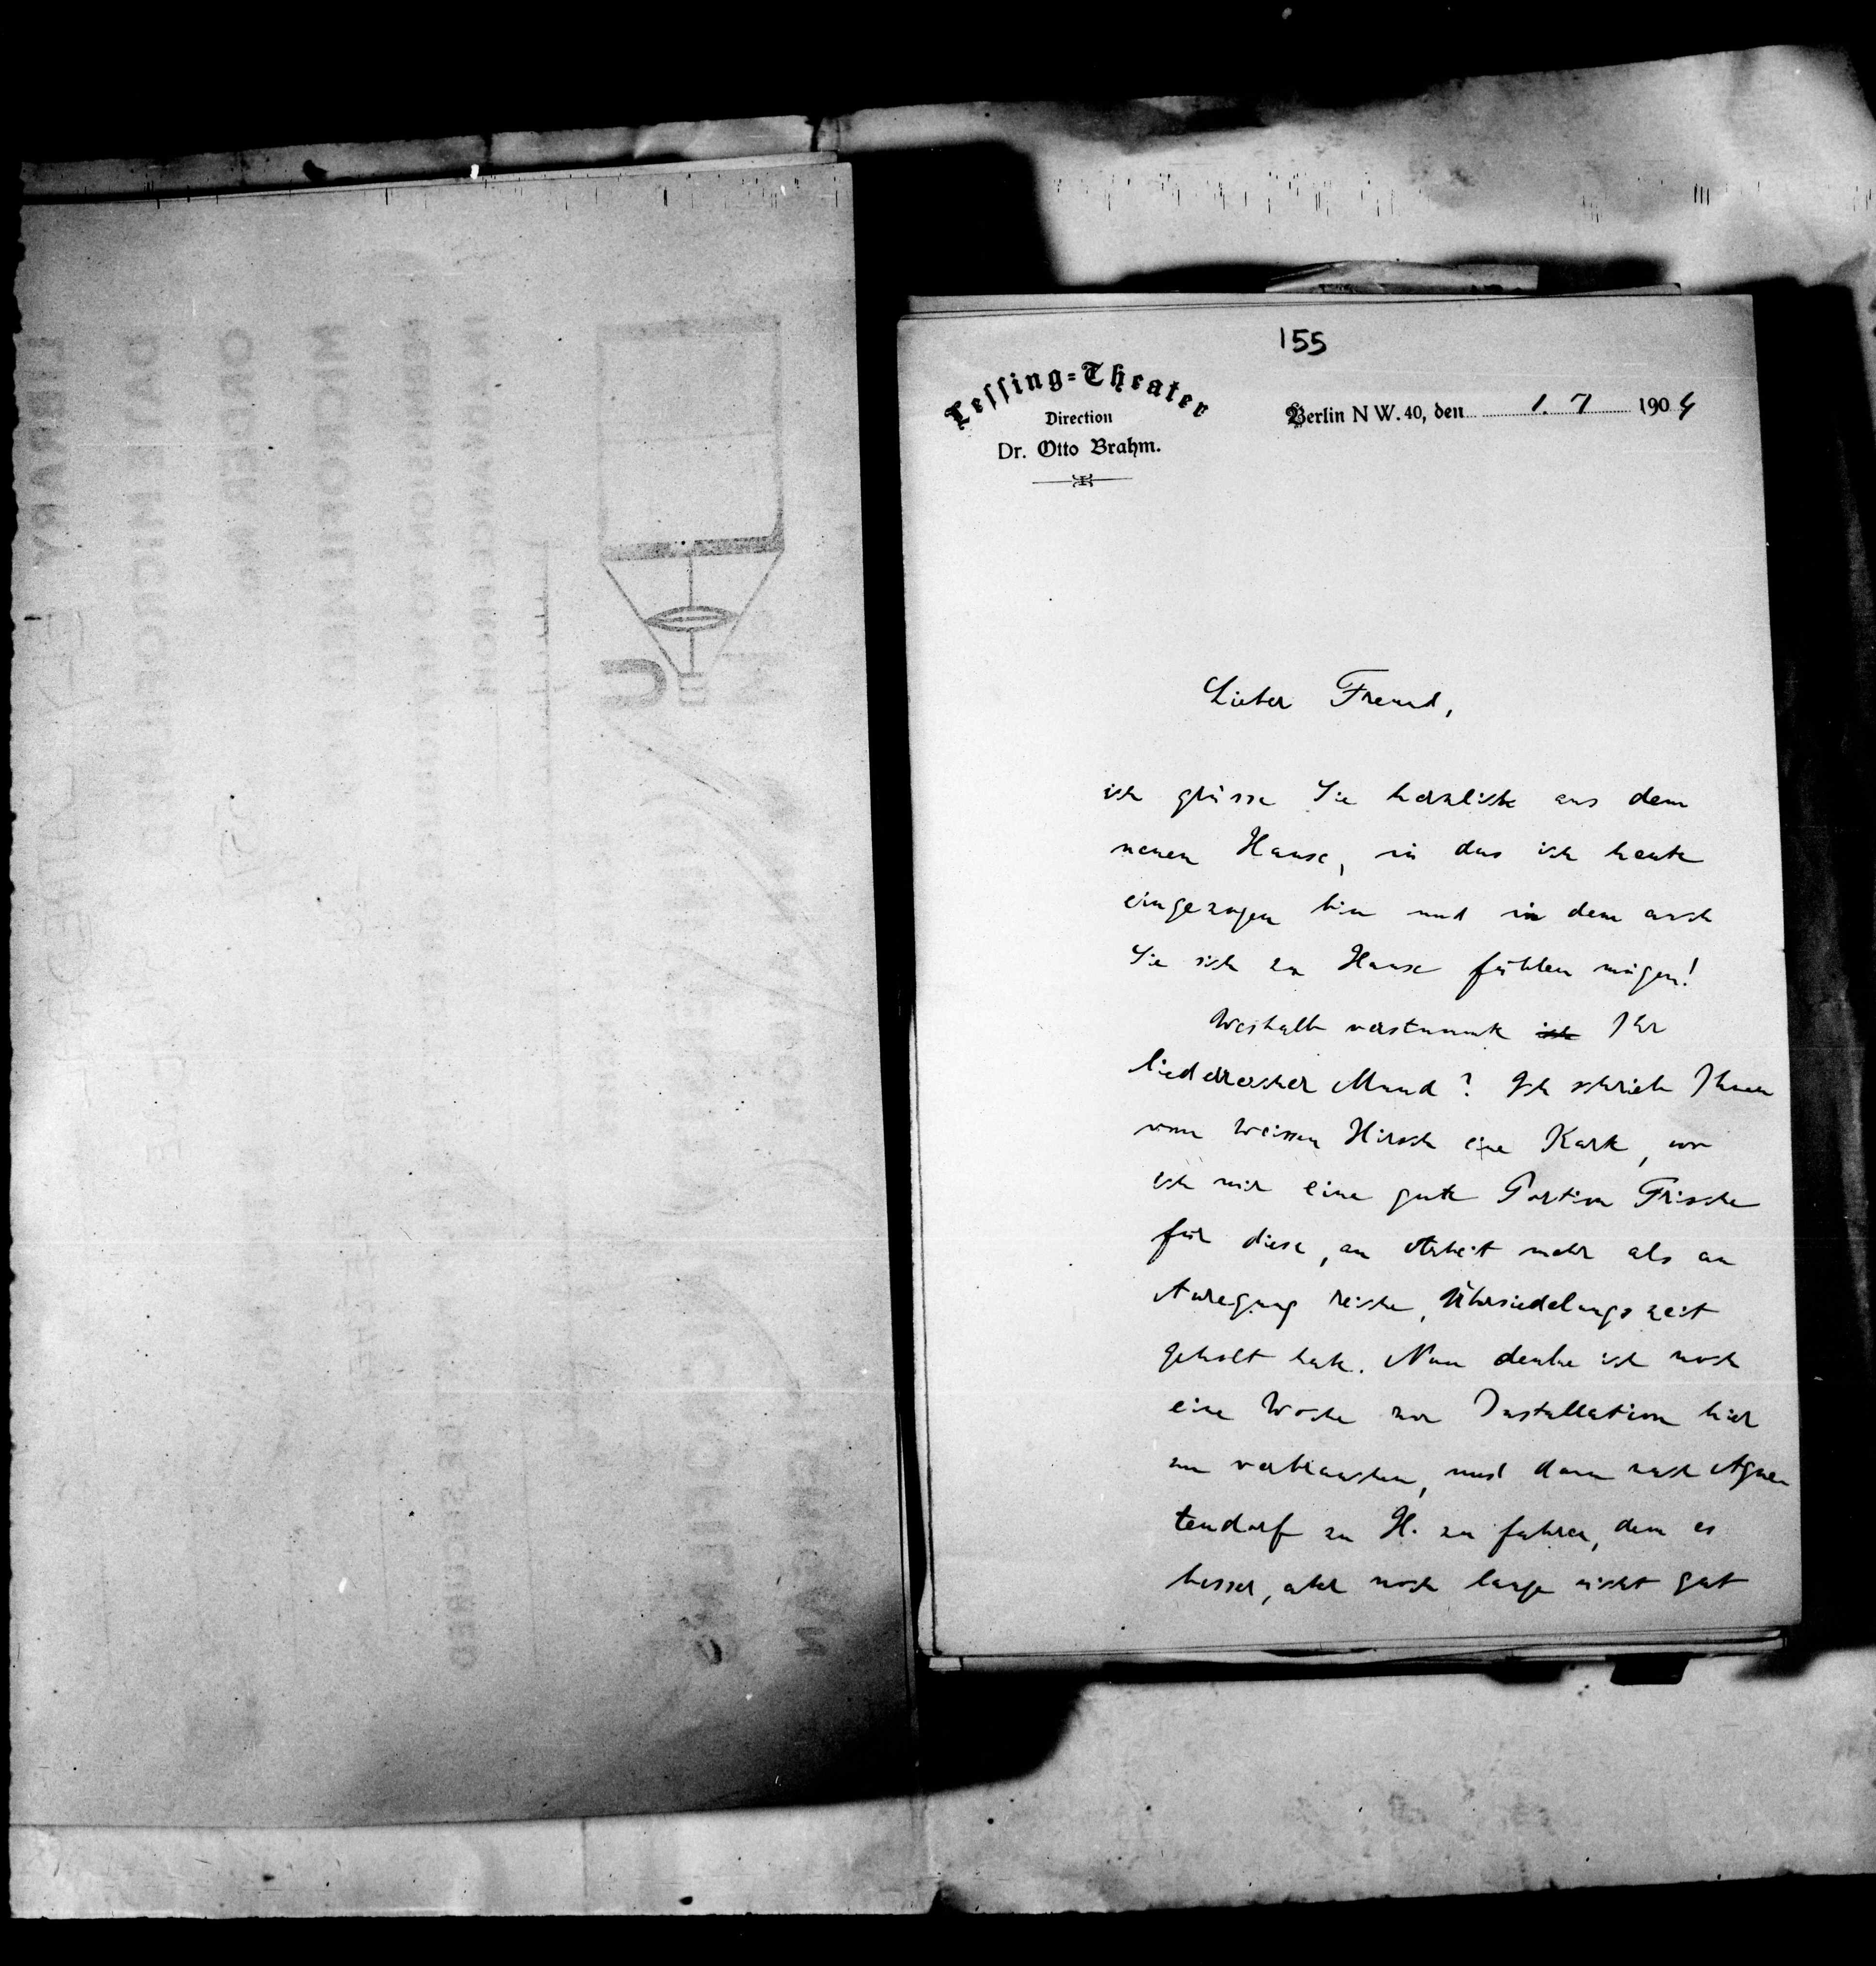 155
Lessing=Theater
Direction
Dr. Otto Brahm.
Berlin N W. 40, den 1. 7 1904
Lieber Freund,
ich grüsse Sie herzlichst aus dem
neuen Hause, in das ich heute
eingezogen bin und in dem auch
Sie sich zu Hause fühlen mögen!
Weshalb verstummte ich Ihr
liederreicher Mund? Ich schrieb Ihnen
vom Weissen Hirsch eine Karte, wo
ich mir eine gute Portion Frische
für diese, an Arbeit mehr als an
Anregung reiche, Übersiedelungszeit
geholt habe. Nun denke ich noch
eine Woche zur Installation hier
zu verbrauchen, und dann nach Agne
tendorf zu H. zu fahren, dem es
besser, aber noch lange nicht gut